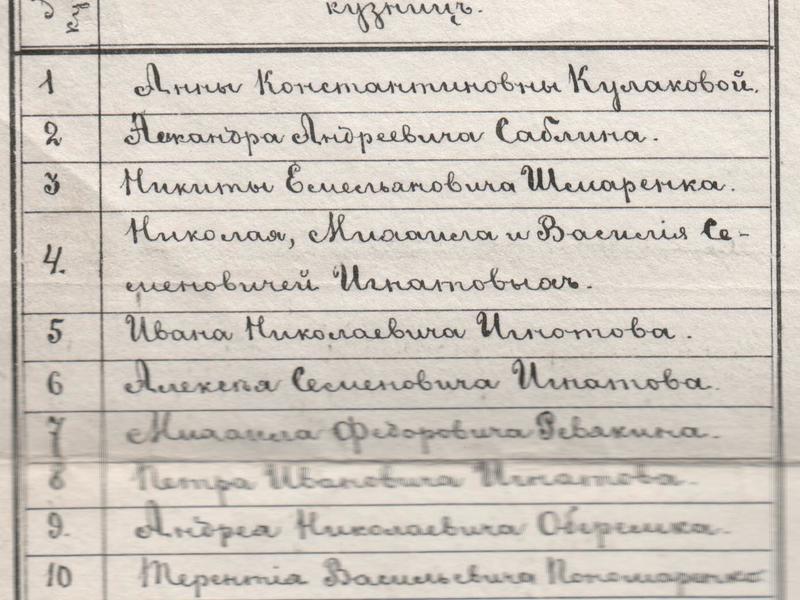 кузницъ.
1 Анны Константиновны Кулаковой.
2 Искандра Андреевича Саблина.
3 Никиты Емельяновича Шмаренка.
4. Николая, Михаила и Василія Се-
меновичей Игнатовыхъ.
5 Ивана Николаевича Игнотова.
6 Алексѣя Семеновича Игнатова.
7 Михаила Федоровича Ревякина.
8 Петра Ивановича Игнатова.
9. Андрея Николаевича
10 Терентія Васильевича Пономаренко